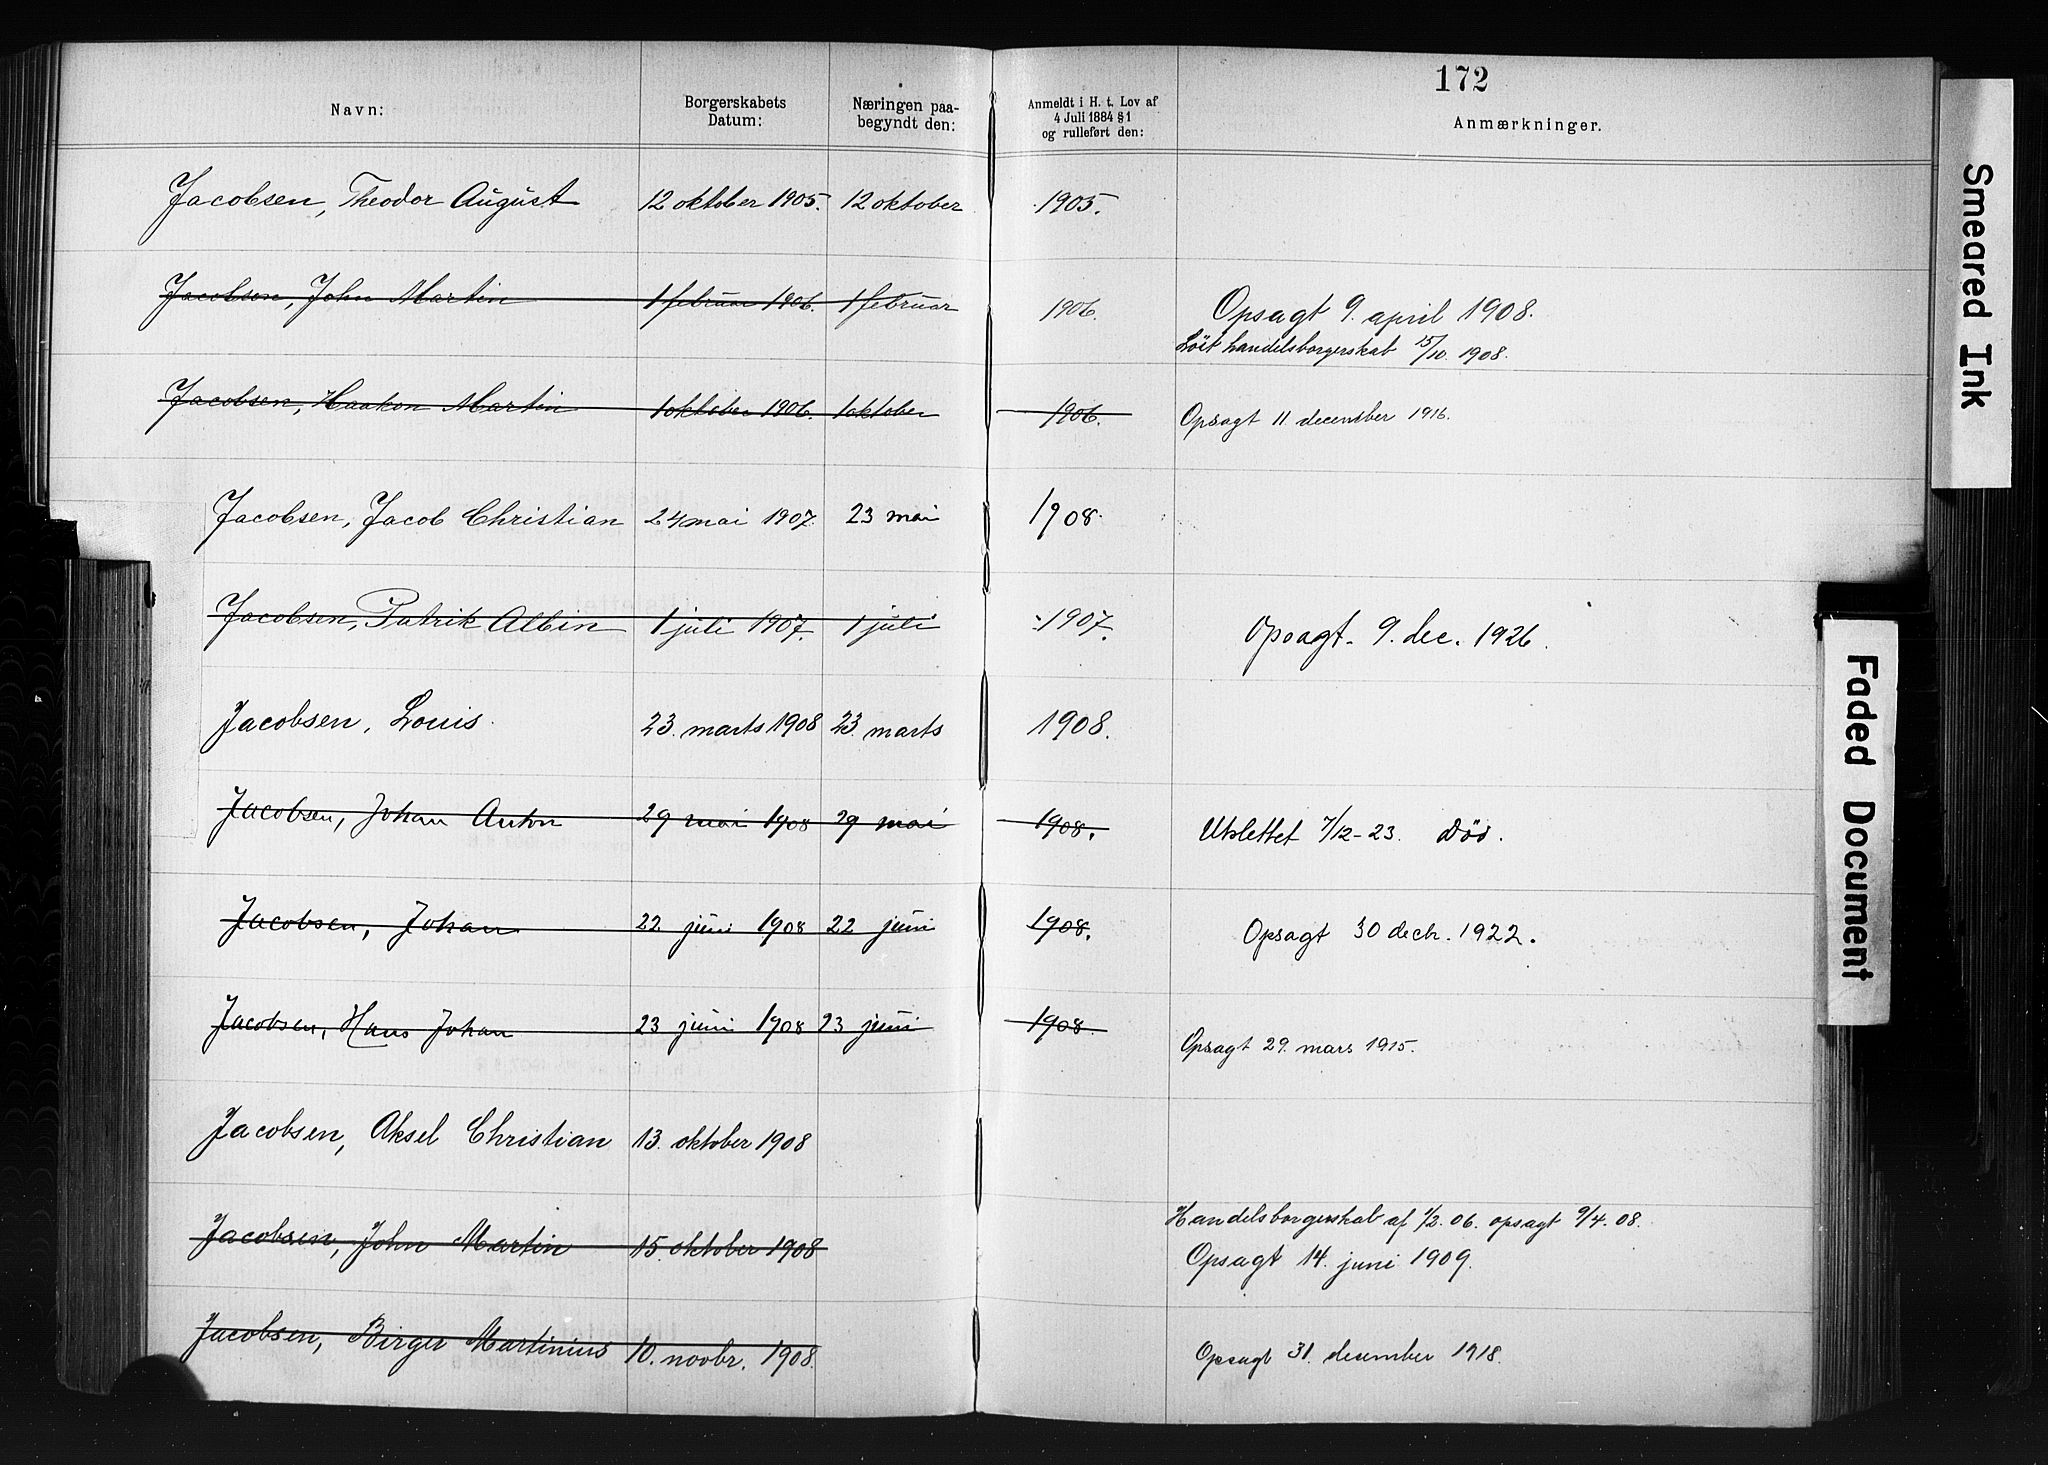 172
Navn: Borgerskabets Datum: Næringen paa-begyndt den: Anmeldt i H. t. Lov af 4 Juli 1884 § 1 og rulleført den: Anmærkninger.
Jacobsen, Theodor August 12 oktober 1905. 12 oktober 1905.
Jacobsen, John Martin 1 februar 1906. 1 februar 1906. Opsagt 9. april 1908.
Löst handelsborgerskab 15/10. 1908.
Jacobsen, Haakon Martin 1 oktober 1906. 1 oktober 1906. Opsagt 11 december 1916.
Jacobsen, Jacob Christian 24 mai 1907. 23 mai 1908.
Jacobsen, Patrik Albin 1 juli 1907. 1 juli 1907. Opsagt 9. dec. 1926.
Jacobsen, Louis. 23. marts 1908 23. marts 1908.
Jacobsen, Johan Anton 29 mai 1908 29 mai 1908. Utslettet 7/12-23. Död.
Jacobsen, Johan 22 juni 1908 22 juni 1908. Opsagt 30 decbr. 1922.
Jacobsen, Hans Johan 23 juni 1908 23 juni 1908. Opsagt 29. mars 1915.
Jacobsen, Aksel Christian 13. oktober 1908
Handelsborgerskab af 1/2. 06. opsagt 9/4. 08.
Jacobsen, John Martin 15. oktober 1908 Opsagt 14. juni 1909.
Jacobsen, Birger Martinius 10. novbr. 1908. Opsagt 31. desember 1918.
Smeared Ink
Faded Document